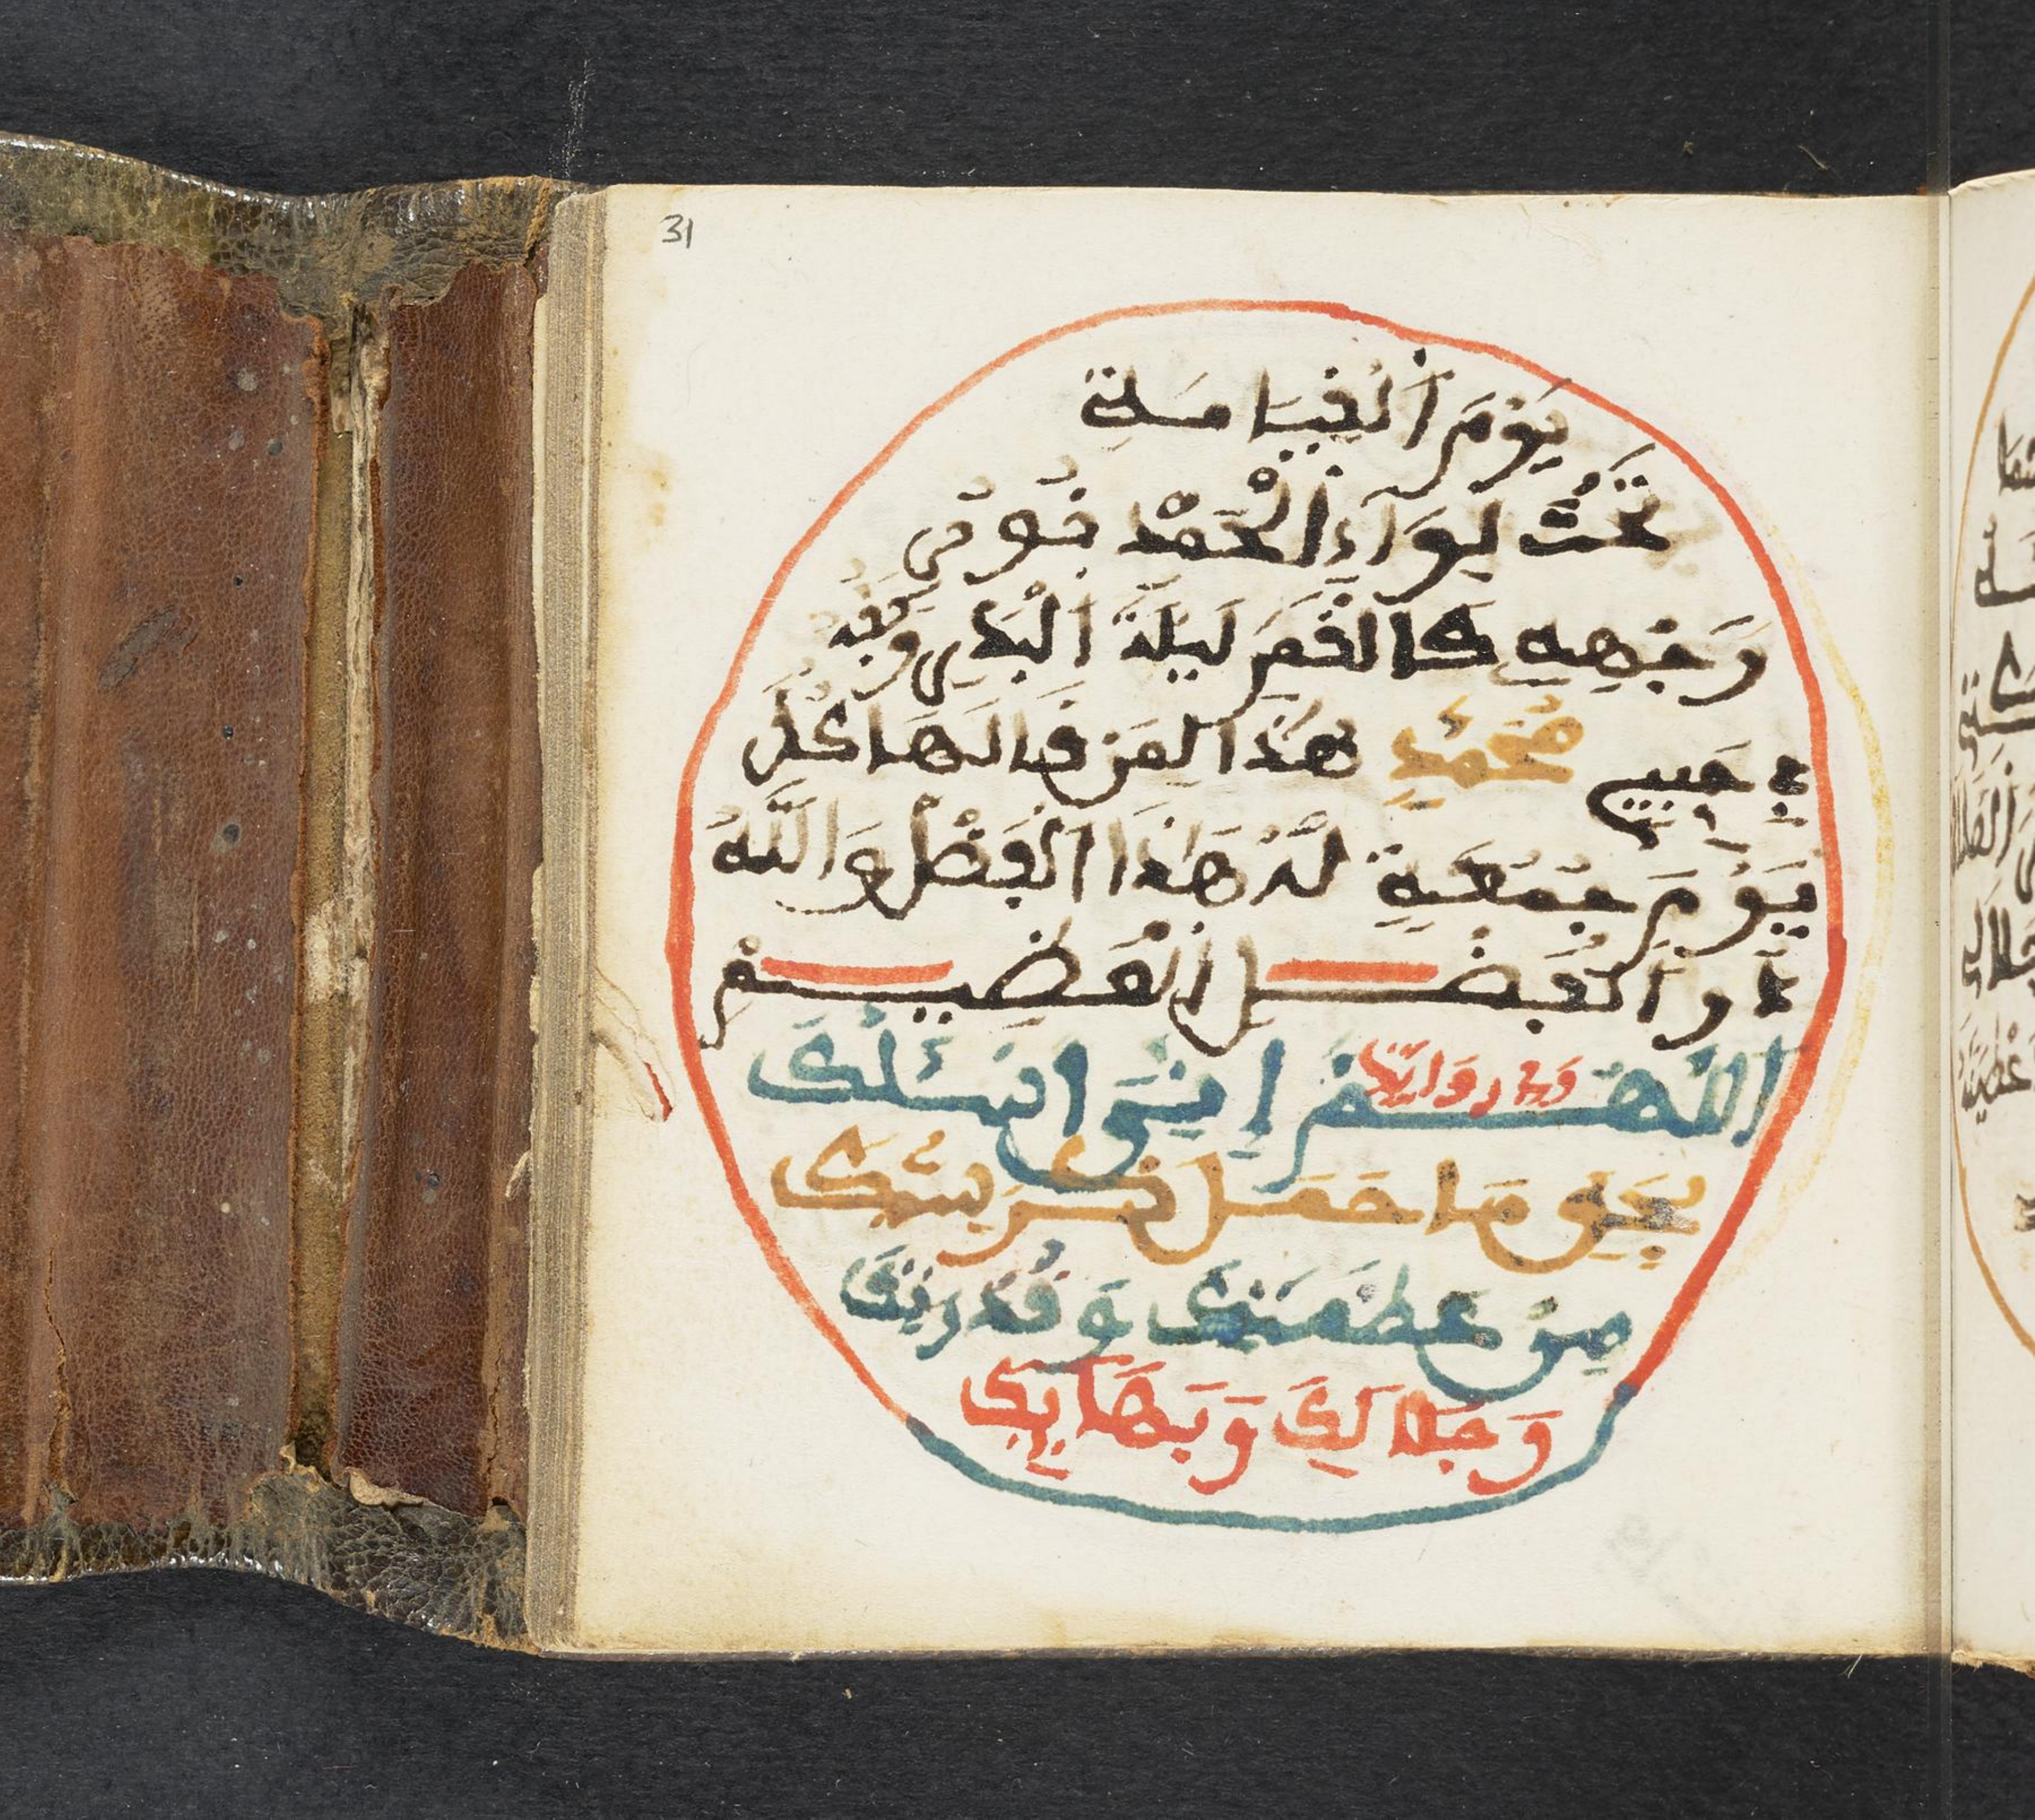 31
يَوْمَ الْقِيَامَةِ
تَحْتَ لِوَآءِ الْحَمْدِ فَوْقَ
وَجْهِهِ كَالْقَمَرِ لَيْلَةَ الْبَدْرِ
حَبِيبِي مُحَمَّدٍ هٰذَا لِمَنْ قَالَهَا كُلَّ
يَوْمَ جُمُعَةٍ لَهُ هَاذَا الْفَضْلُ وَاللَّهُ
ذُو الْفَضْلِ الْعَظِيمْ
اللَّهُمَّ إِنِّي أَسْئَلُكَ
بِحَقِّ مَا حَمَلَ كُرْسِيُّكَ
مِنْ عَظَمَتِكَ وَقُدْرَتِكَ
وَجَلَالِكَ وَبَهَائِكَ